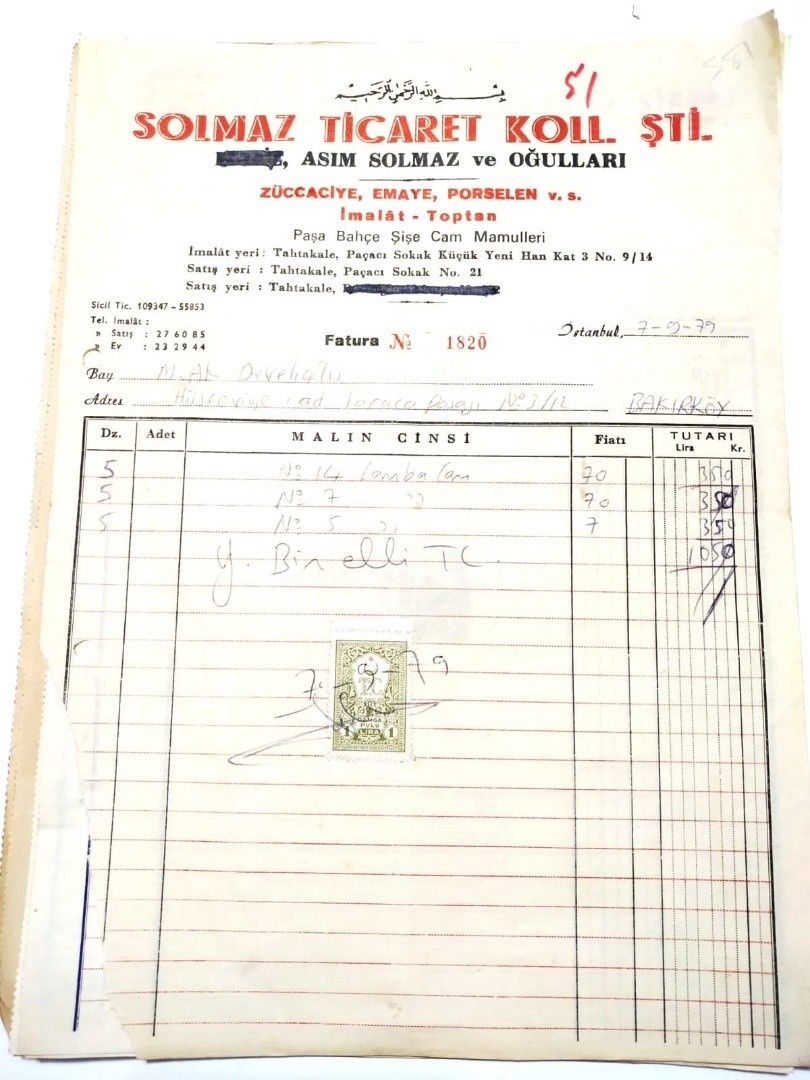 بسم الله الرحمن الرحيم
51
58
SOLMAZ TİCARET KOLL. ŞTİ.
, ASIM SOLMAZ ve OĞULLARI
ZÜCCACİYE, EMAYE, PORSELEN v. s.
İmalât - Toptan
Paşa Bahçe Şişe Cam Mamulleri
İmalât yeri: Tahtakale, Paçacı Sokak Küçük Yeni Han Kat 3 No. 9/14
Satış yeri : Tahtakale, Paçacı Sokak No. 21
Satış yeri : Tahtakale,
Sicil Tic. 109347 - 55853
Tel. İmalât :
» Satış : 27 60 85
» Ev : 23 29 44
Fatura № 1820
İstanbul, 7-9-79
Bay M. Develioğlu
Adres cad No 3/12 BAKIRKÖY
Dz. Adet MALIN CİNSİ Fiatı TUTARI
Lira Kr.
5 No 14 Lamba Cam 70 350
5 No 7 " 70 350
5 No 5 " 7 350
Y. Bin elli TL. 1050
7-9-79
DAMGA
PULU
1 LİRA 1